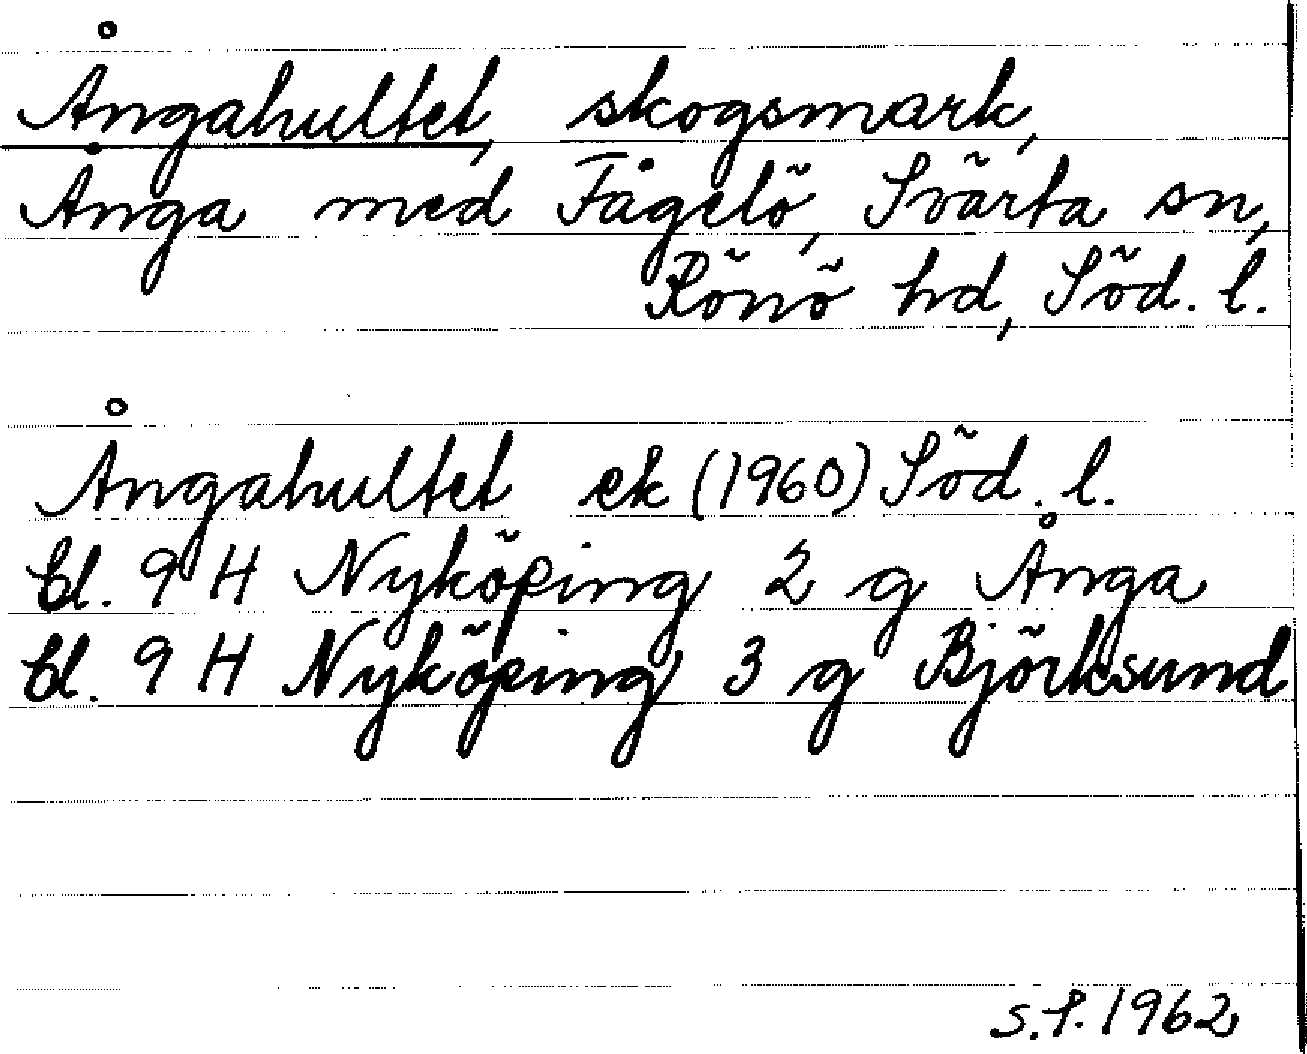 Ångahultet, skogsmark,
Ånga med Fågelö, Svärta sn,
Rönö hd, Söd. l.
Ångahultet ek (1960) Söd. l.
bl. 9 H Nyköping 2 g Ånga
bl. 9 H Nyköping 3 g Björksund
S.P. 1962